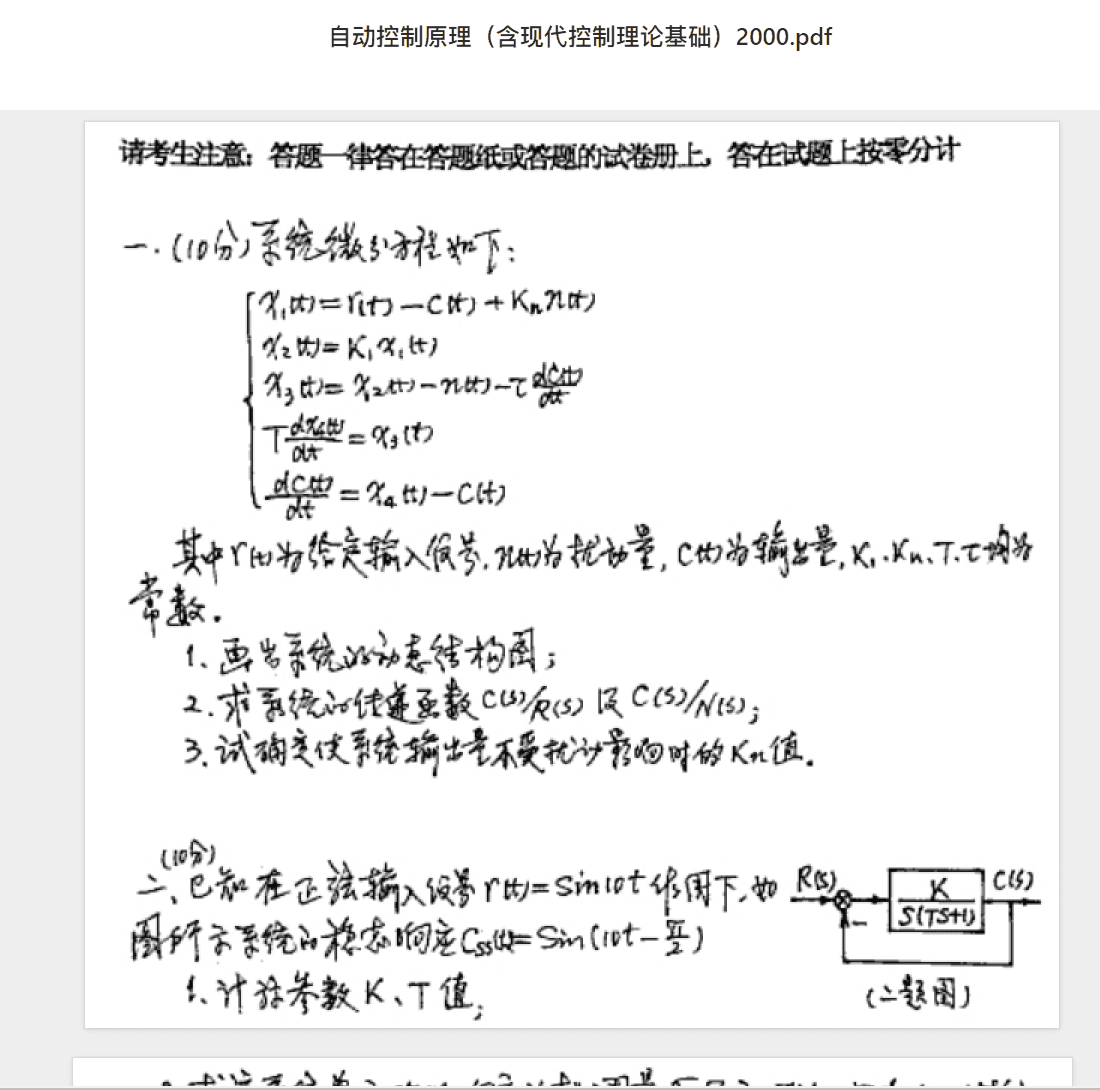 自动控制原理（含现代控制理论基础）2000.pdf
请考生注意：答题一律答在答题纸或答题的试卷册上，答在试题上按零分计
一.(10分)系统微分方程如下：
x₁(t)=r(t)-C(t)+Kₙn(t)
x₂(t)=K₁x₁(t)
x₃(t)=x₂(t)-n(t)-τ dC(t)/dt
T dx₄(t)/dt=x₃(t)
dC(t)/dt=x₄(t)-C(t)
其中r(t)为给定输入信号,n(t)为扰动量,C(t)为输出量,K₁.Kₙ、T.τ均为
常数.
1、画出系统的动态结构图；
2.求系统的传递函数C(s)/R(s)及C(s)/N(s);
3.试确定使系统输出量不受扰动影响时的Kₙ值.
(10分)
二、已知在正弦输入信号r(t)=Sin10t作用下,如
图所示系统的稳态响应Css(t)=Sin(10t-π/2)
1、计算参数K、T值;
R(s)
-
K/S(TS+1)
C(s)
(二题图)